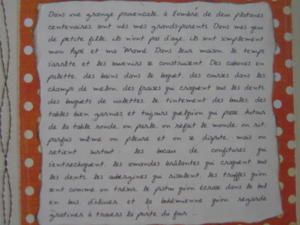 Dans une grange provençale à l'ombre de deux platanes
centenaires sont nés mes grands-parents. Dans mes yeux
de petite fille, ils n'ont pas d'âge, ils sont simplement
mon Papé et ma Mamé. Dans leur maison le temps
s'arrête et les souvenirs se construisent. Des cabanes en
palette, des bains dans le baquet, des courses dans les
champs de melon, des fraises qui croquent sous les dents
des baquets de le tintement des boules, des
tables bien garnies et toujours quelqu'un qui passe. Autour
de la table ronde on parle, on refait le monde, on rit
parfois même on pleure et on se dispute, mais on
retient surtout les bocaux de confitures qui
s'entrechoquent, les amandes brûlantes qui croquent sous
les dents, les aubergines qui rissolent, les truffes qu'on
sent comme un trésor, le piston qu'on écrase dans le bol
en bois d'olivier et la bohémienne qu'on regarde
gratiner à travers la porte du four...